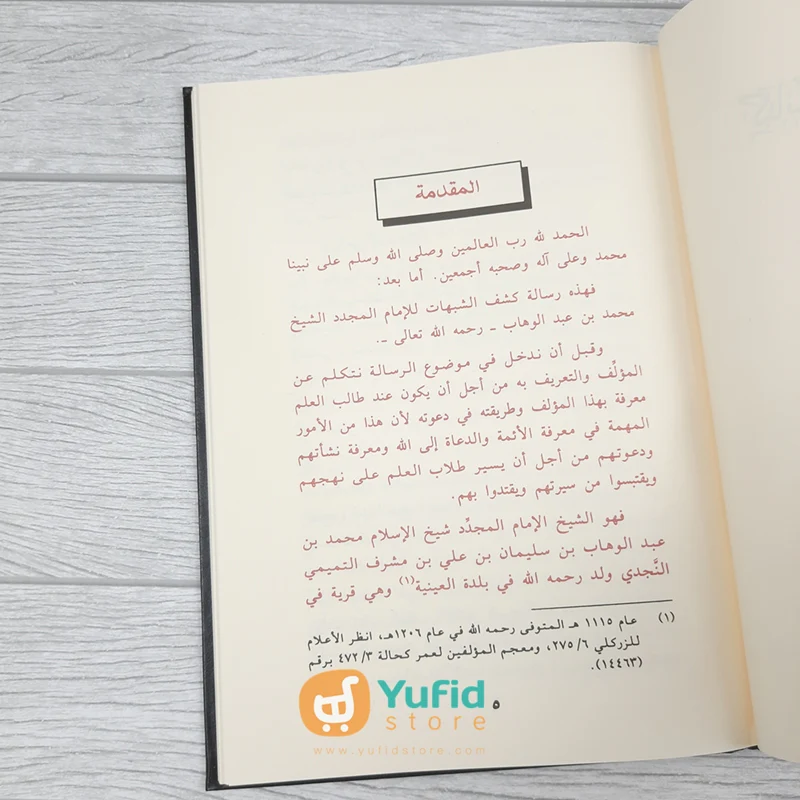 المقدمة
الحمد لله رب العالمين وصلى الله وسلم على نبينا
محمد وعلى آله وصحبه أجمعين. أما بعد:
فهذه رسالة كشف الشبهات للإمام المجدد الشيخ
محمد بن عبد الوهاب ـ رحمه الله تعالى ـ.
وقبل أن ندخل في موضوع الرسالة نتكلم عن
المؤلِّف والتعريف به من أجل أن يكون عند طالب العلم
معرفة بهذا المؤلف وطريقته في دعوته لأن هذا من الأمور
المهمة في معرفة الأئمة والدعاة إلى الله ومعرفة نشأتهم
ودعوتهم من أجل أن يسير طلاب العلم على نهجهم
ويقتبسوا من سيرتهم ويقتدوا بهم.
فهو الشيخ الإمام المجدِّد شيخ الإسلام محمد بن
عبد الوهاب بن سليمان بن علي بن مشرف التميمي
النَّجدي ولد رحمه الله في بلدة العينية(١) وهي قرية في
(١) عام ١١١٥ هـ المتوفى رحمه الله في عام ١٢٠٦هـ، انظر الأعلام
للزركلي ٢٧٥/٦، ومعجم المؤلفين لعمر كحالة ٤٧٢/٣ برقم
(١٤٤٦٣).
Yufid
store
٥
www.yufidstore.com